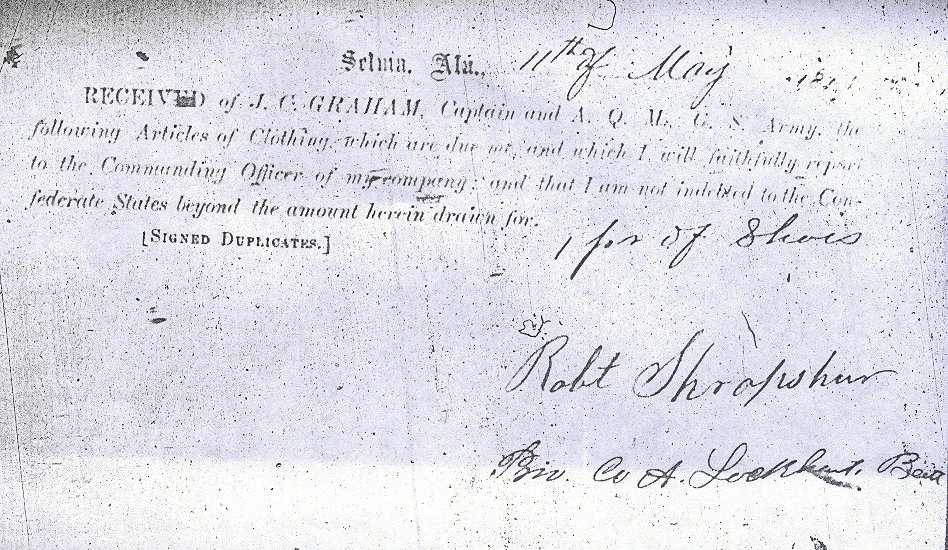 Selma, Ala., 11th of May
RECEIVED of J. C. GRAHAM, Captain and A. Q. M., C. S. Army, the
following Articles of Clothing, which are due me, and which I will faithfully report
to the Commanding Officer of my company; and that I am not indebted to the Con-
federate States beyond the amount herein drawn for.
[SIGNED DUPLICATES.]
1 pr of Shoes
Robt Shropshur
Priv. Co A. Lockhart. Batt